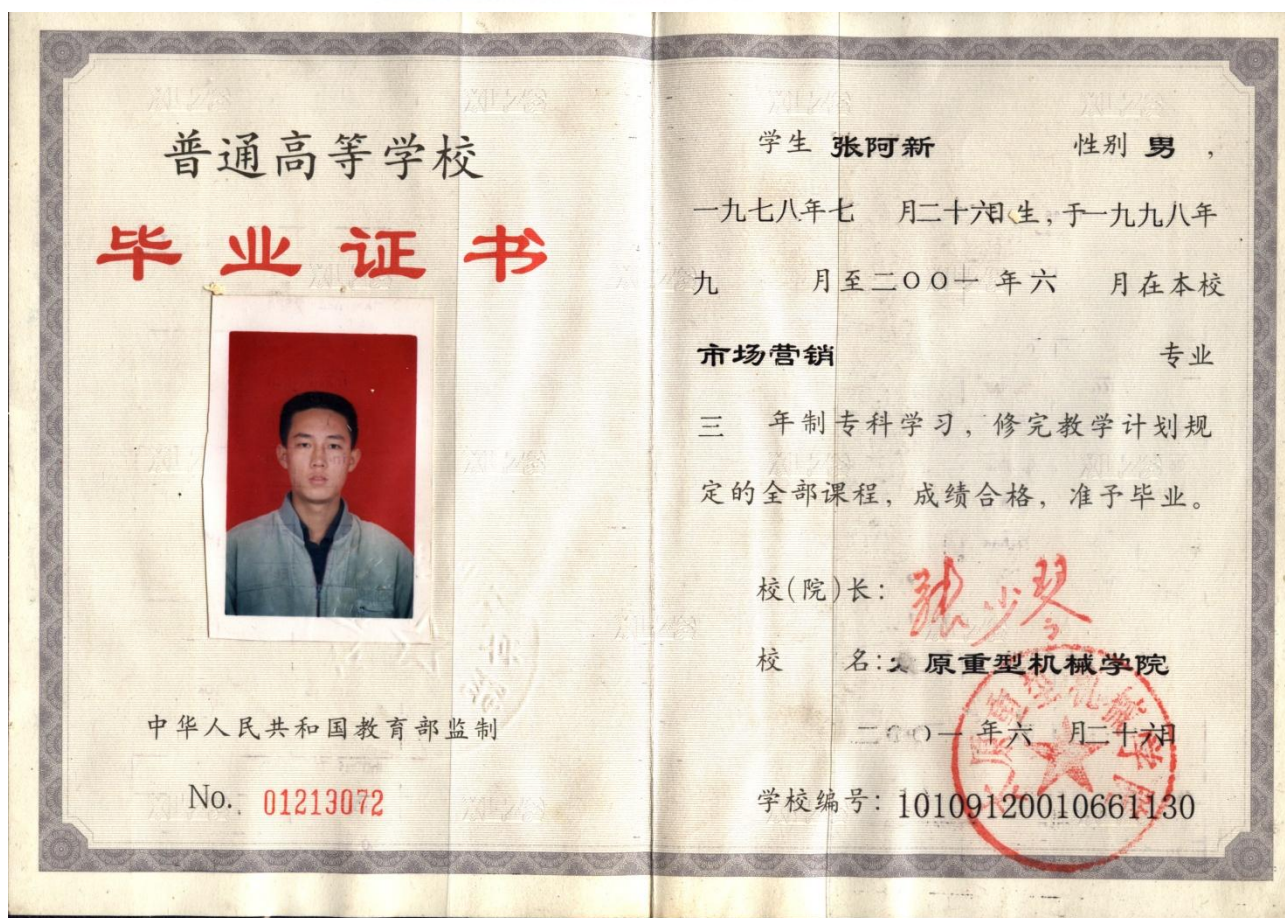 普通高等学校
毕业证书
中华人民共和国教育部监制
No. 01213072
学生 张阿新 性别 男,
一九七八年七 月二十六日生,于一九九八年
九 月至二〇〇一 年六 月在本校
市场营销 专业
三 年制专科学习, 修完教学计划规
定的全部课程, 成绩合格, 准予毕业。
校(院)长: 张少琴
校 名:太原重型机械学院
二〇〇一 年六 月二十六日
学校编号: 101091200106611​30
太原重型机械学院